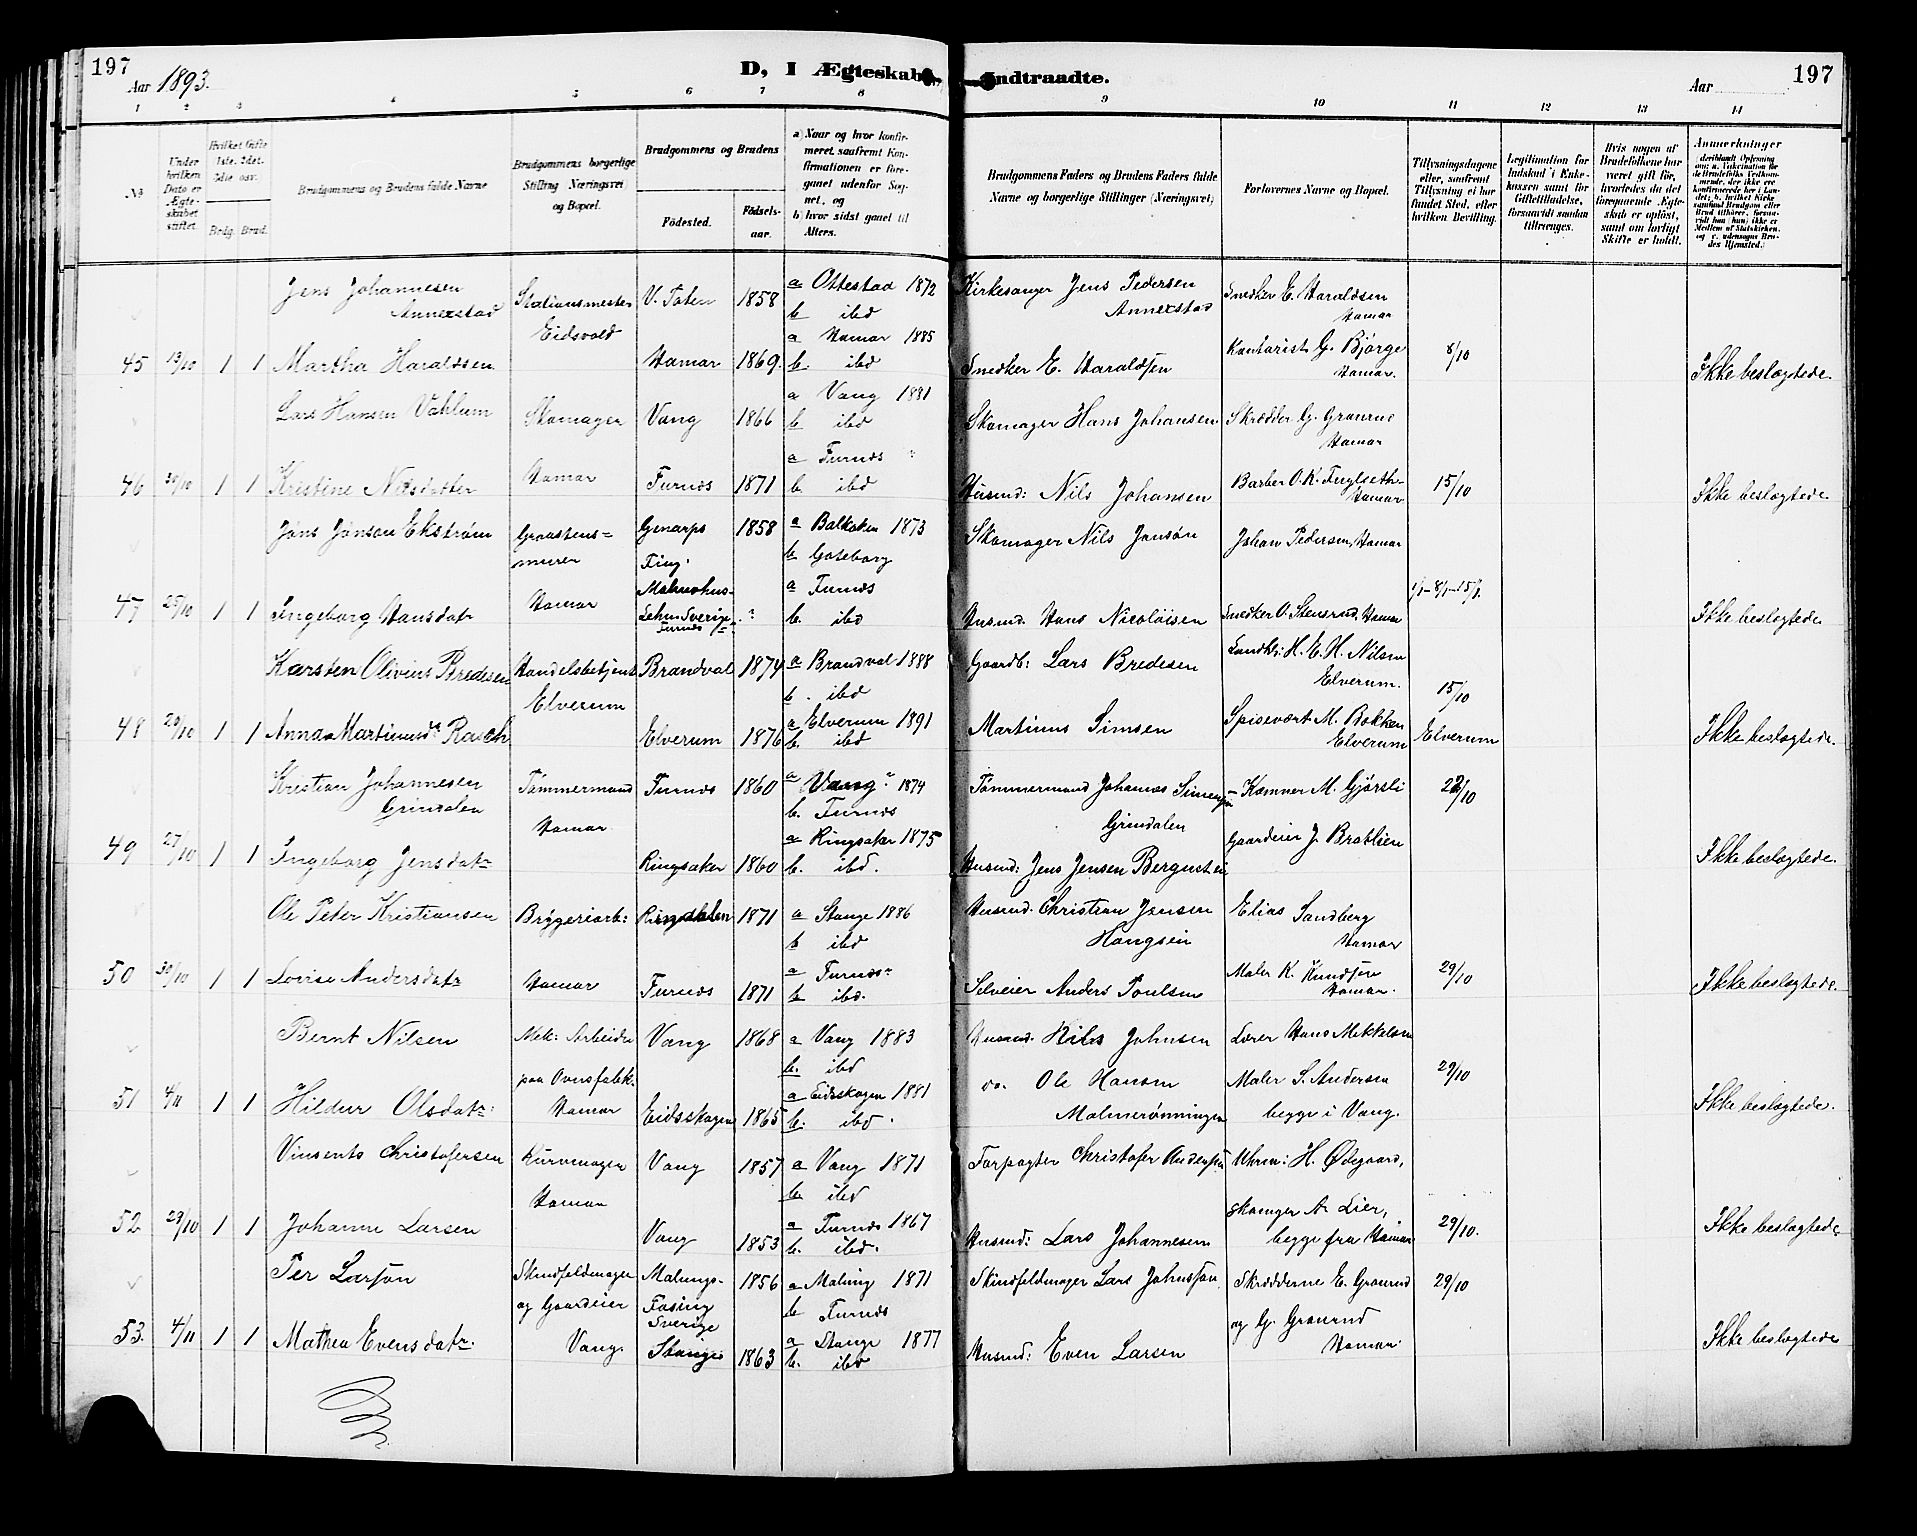 197
Aar 1893.
D, I Ægteskab Indtraadte.
Aar
197
1 2 3 4 5 6 7 8 9 10 11 12 13 14
No
Under hvilken Dato er Ægteskabet stiftet.
Hvilket Gifte 1ste, 2det, 3die osv.
Brdg. Brud.
Brudgommens og Brudens fulde Navne
Brudgommens borgerlige Stilling Næringsvei og Bopæl.
Brudgommens og Brudens
Fødested.
Fødselsaar.
a) Naar og hvor konfirmeret, saafremt Konfirmationen er foreganet udenfor Sognet, og
b) hvor sidst gaaet til Alters.
Brudgommens Faders og Brudens Faders fulde Navne og borgerlige Stillinger (Næringsvei)
Forlovernes Navne og Bopæl.
Tillysningsdagene eller, saafremt Tillysning ei har fundet Sted, efter hvilken Bevilling.
Legitimation for Indskud i Enkekassen samt for Giftetilladelse, forsaavidt saadan tiltrænges.
Hvis nogen af Brudefolkene har været gift før, hvorledes da det foregaaende Ægteskab er opløst, samt om lovligt Skifte er holdt.
Anmærkninger
Jens Johannesen Annexstad Stationsmester Eidsvold V. Toten 1858 a Ottestad 1872 b ibd Kirkesanger Jens Pedersen Annexstad Snedker E. Haraldsen Hamar
45 13/10 1 1 Martha Haraldsen Hamar 1869. a Hamar 1885 b. ibd Snedker E. Haraldsen Kontorist G. Bjørge Hamar. 8/10 Ikke beslægtede.
Lars Hansen Vahlum Skomager Vang 1866 a Vang 1881 b ibd Skomager Hans Johansen Skrædder G. Granrud Hamar
46 30/10 1 1 Kristine Nilsdatter Hamar Furnæs 1871 a Furnæs b. ibd Husmd: Nils Johansen Barber O. K. Hamar 15/10 Ikke beslægtede
Jöns Jönson Ekström Graastensmurer Genarps Ting. Malmøhus Lehn Sverige 1858 a Balkaken 1873 b Goteborg Skomager Nils Jonsön Johan Pedersen, Hamar
47 25/10 1 1 Ingeborg Hansdatr Hamar Furnæs a Furnæs b. ibd Husmd. Hans Nicolaisen Snedker O. Stensrud, Hamar Ikke beslægtede
Karsten Olivius Bredesen Handelsbetjent Elverum Brandval 1874 a Brandval 1888 b. ibd Gaardb: Lars Bredesen Landh: H. E. H. Nilsen Elverum. 15/10
48 20/10 1 1 Anna Martinusdr Rasch Elverum 1876 a Elverum 1891 b. ibd Martinus Simsen Spisevært M. Bakken Elverum Elverum Ikke beslægtede.
Kristian Johannesen Grindalen Tømmermand Hamar Furnæs 1860 a Vang 1874 b. Furnæs Tømmermand Johannes Simensen Grindalen Kæmner M. Gjørsli 22/10
49 27/10 1 1 Ingeborg Jensdatr Ringsaker 1860 a Ringsaker 1875 b. ibd. Husmd: Jens Jensen Bergusteie Gaardeier J. Bratlien Ikke beslægtede.
Ole Peter Kristiansen Bryggeriarb: 1871 a Stange 1886 b ibd Husmd. Christian Jensen Elias Sandberg Hamar
50 30/10 1 1 Lovise Andersdatr Hamar Furnæs 1871 a Furnæs b ibd. Selveier Anders Poulsen Maler K. Knudsen Hamar. 29/10 Ikke beslægtede.
Bernt Nilsen Mek: Arbeider paa Ovnsfabk. Hamar Vang 1868 a Vang 1883 b. ibd Husmd. Nils Johnsen Lærer Hans Mikkelsen
51 4/11 1 1 Hildur Olsdatr: Eidsskogen 1865 a Eidsskogen 1881 b. ibd. do. Ole Hansen Malmerønningen Maler S. Andersen begge i Vang. 29/10 Ikke beslægtede.
Vinsents Christofersen Kurvmager Hamar Vang 1857 a Vang 1871 b. ibd Forpagter Christofer Andersen Uhrm: H. Ødegaard,
52 29/10 1 1 Johanne Larsen Vang 1853 a Furnæs 1867 b. ibd. Husmd: Lars Johannesen Skomager A. Lier, begge fra Hamar 29/10. Ikke beslægtede
Per Larson Skindfeldmager og Gaardeier Vang. Malungs-Fosing Sverige 1856 a Malung 1871 b Furnæs Skindfeldmager Lars Johnsson Skrædderne E. Granrud og G. Granrud Hamar 29/10
53. 4/11 1 1 Mathea Evensdatr. Stange 1863 a Stange 1877 b. ibd Husmd: Even Larsen Ikke beslægtede